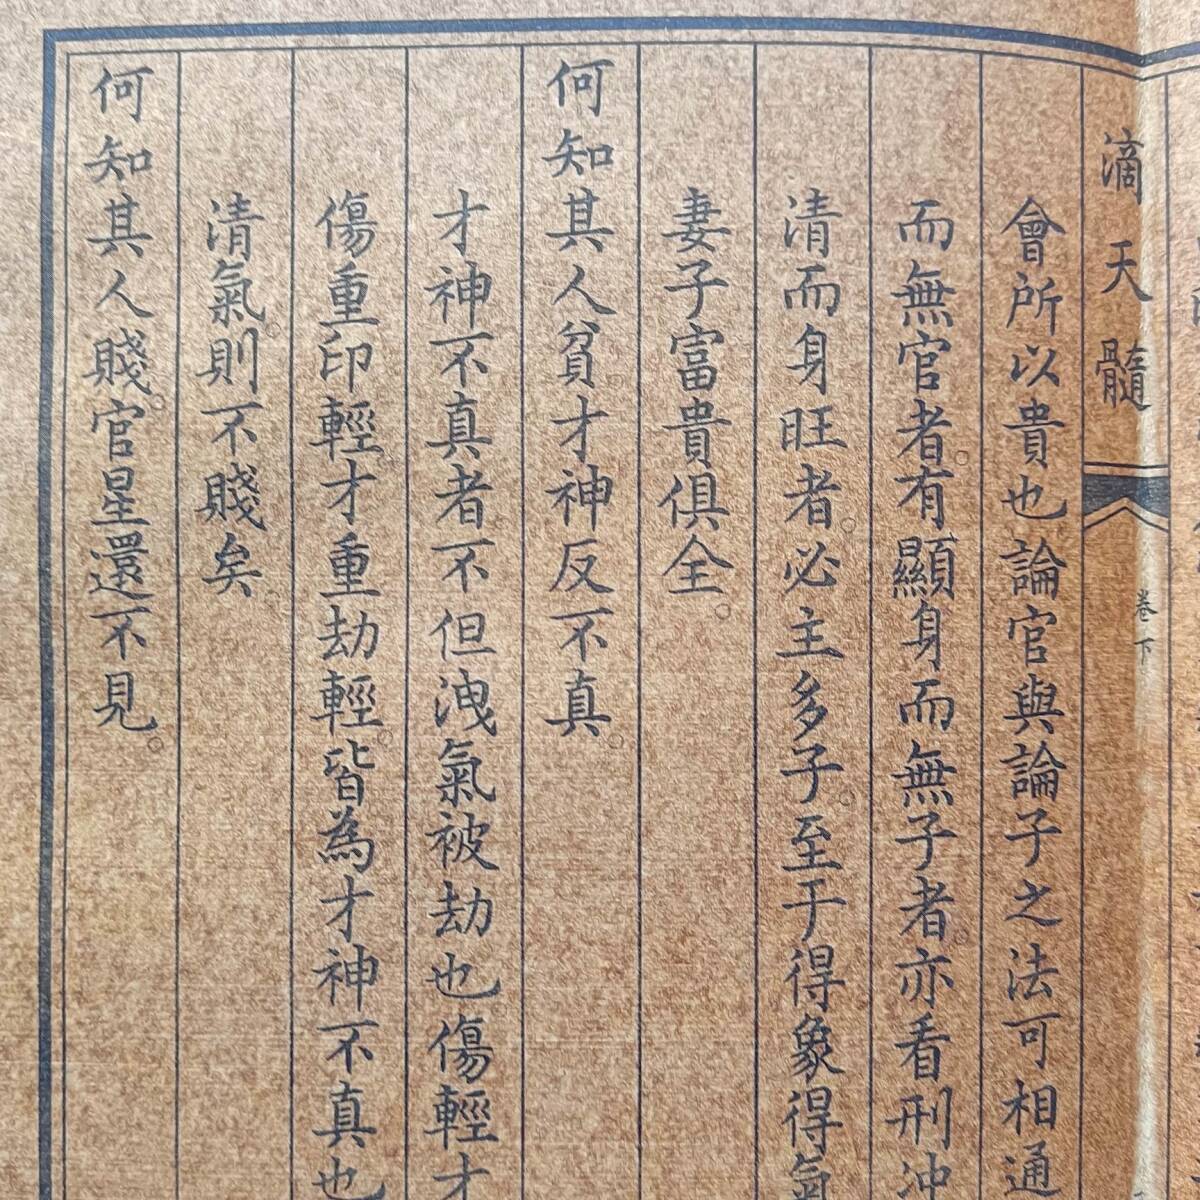 滴天髓
卷下
會所以貴也論官與論子之法可相通
而無官者。有顯身而無子者。亦看刑沖
清而身旺者。必主多子。至于得象得氣
妻子富貴俱全。
何知其人貧才神反不真。
才神不真者不但洩氣被劫也。傷輕才
傷重印輕。才重劫輕。皆為才神不真也
清氣。則不賤矣。
何知其人賤。官星還不見。